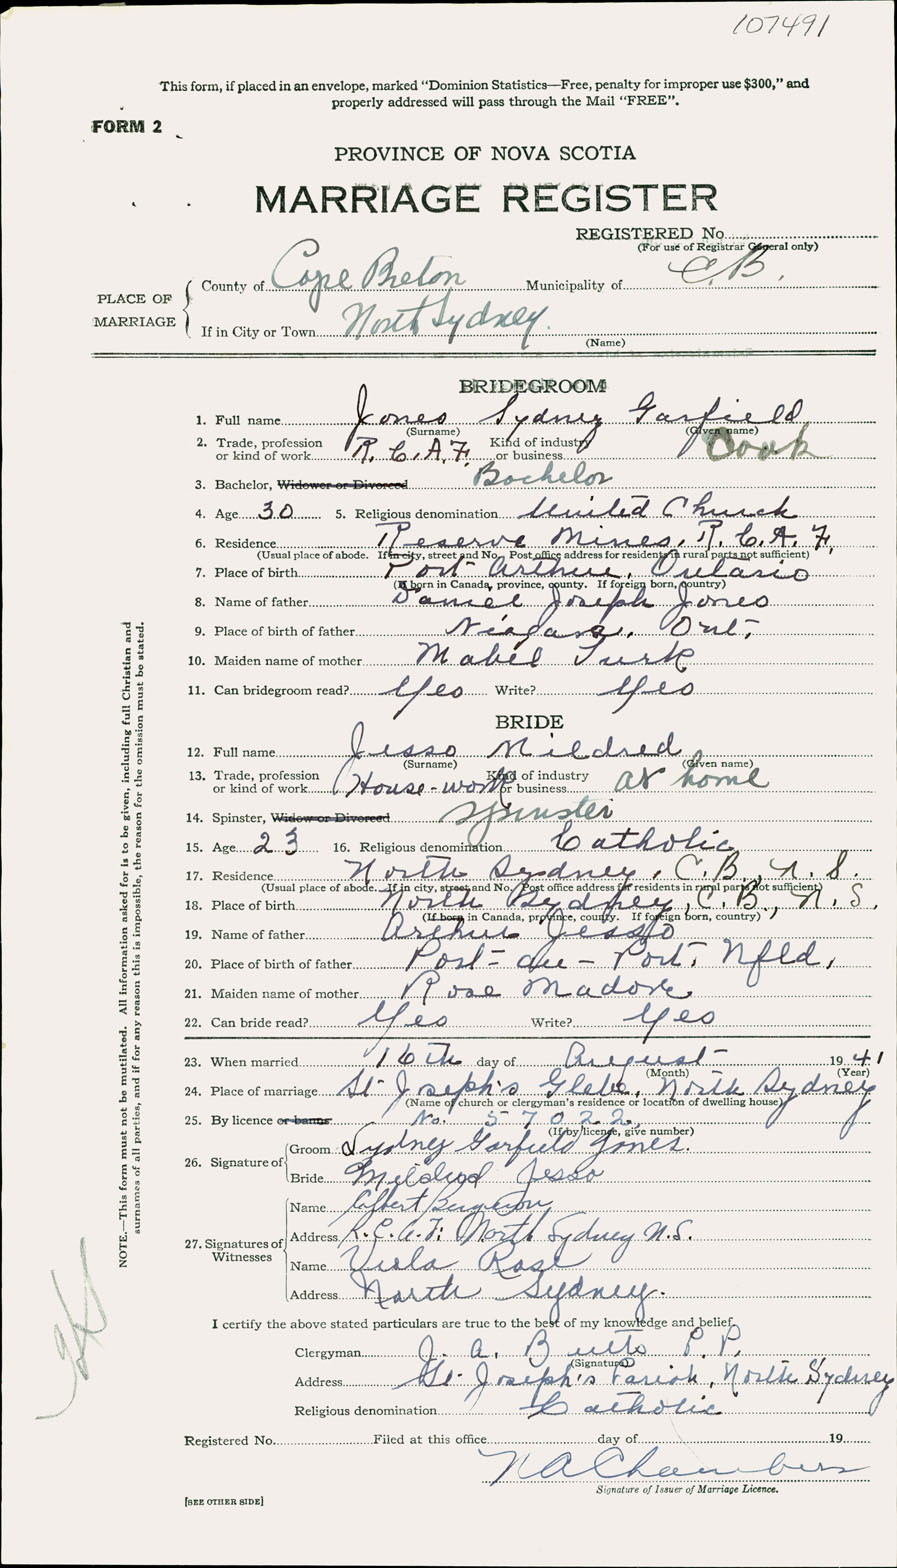 107491
This form, if placed in an envelope, marked "Dominion Statistics—Free, penalty for improper use $300," and
properly addressed will pass through the Mail "FREE".
FORM 2
PROVINCE OF NOVA SCOTIA
MARRIAGE REGISTER
REGISTERED No.
(For use of Registrar General only)
PLACE OF MARRIAGE
County of Cape Breton Municipality of C.B.
If in City or Town North Sydney.
(Name)
BRIDEGROOM
1. Full name Jones Sydney Garfield
(Surname) (Given name)
2. Trade, profession or kind of work R.C.A.F. Kind of industry or business Cook
3. Bachelor, Widower or Divorced Bachelor
4. Age 30 5. Religious denomination United Church
6. Residence Reserve Mines, R.C.A.F.
(Usual place of abode. If in city, street and No. Post office address for residents in rural parts not sufficient)
7. Place of birth Port Arthur, Ontario
(If born in Canada, province, county. If foreign born, country)
8. Name of father Daniel Joseph Jones
9. Place of birth of father Niagara, Ont.
10. Maiden name of mother Mabel Turk
11. Can bridegroom read? Yes Write? Yes
BRIDE
12. Full name Jesso Mildred
(Surname) (Given name)
13. Trade, profession or kind of work House-work Kind of industry or business at home
14. Spinster, Widow or Divorced Spinster
15. Age 23 16. Religious denomination Catholic
17. Residence North Sydney, C.B., N.S.
(Usual place of abode. If in city, street and No. Post office address for residents in rural parts not sufficient)
18. Place of birth North Sydney, C.B., N.S.
(If born in Canada, province, county. If foreign born, country)
19. Name of father Arthur Jesso
20. Place of birth of father Port-au-Port, Nfld.
21. Maiden name of mother Rose Madore
22. Can bride read? Yes Write? Yes
23. When married 16th day of August 1941
(Month) (Year)
24. Place of marriage St. Joseph's Glebe, North Sydney
(Name of church or clergyman's residence or location of dwelling house)
25. By licence or banns No. 57022
(If by license, give number)
26. Signature of Groom Sydney Garfield Jones.
Bride Mildred Jesso
27. Signatures of Witnesses Name Albert Bergeron
Address R.C.A.F. North Sydney N.S.
Name Viola Rose
Address North Sydney.
I certify the above stated particulars are true to the best of my knowledge and belief.
Clergyman J. A. Butts P.P.
(Signature)
Address St. Joseph's Parish, North Sydney
Religious denomination Catholic
Registered No. Filed at this office day of 19
N A Chambers
Signature of Issuer of Marriage Licence.
[SEE OTHER SIDE]
NOTE.—This form must not be mutilated. All information asked for is to be given, including full Christian and
surnames of all parties, and if for any reason this is impossible, the reason for the omission must be stated.